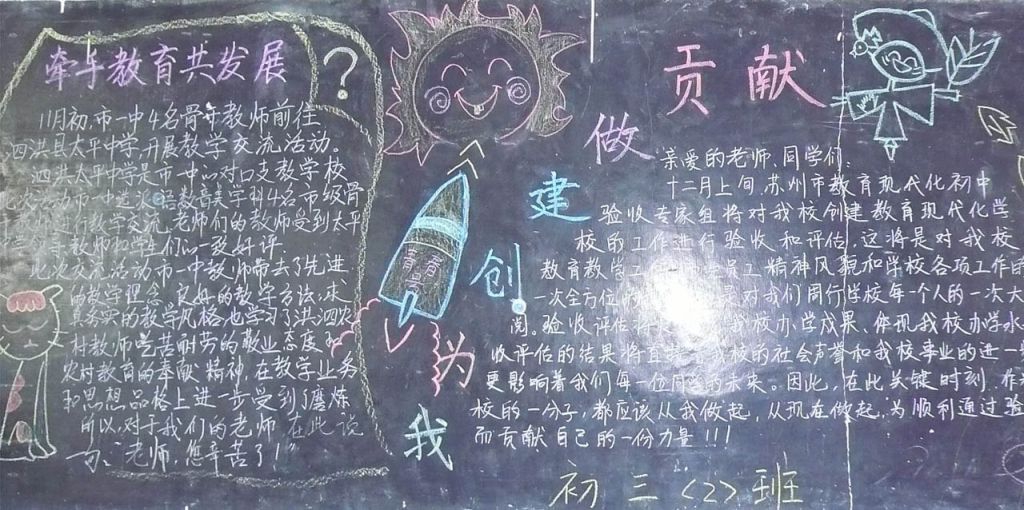 牵手教育共发展
?
11月初,市一中4名骨干教师前往
泗洪县太平中学,开展教学交流活动。
泗洪太平中学是市一中的对口支教学校
此次活动市一中选派语数音美学科4名市级骨
进行教学交流,老师们的教师受到太平
教师和学生们的一致好评
此次交流活动市一中教师带去了先进
的教学理念、良好的教学方法,求
真务实的教学风格,也学习了洪泗农
村教师吃苦耐劳的敬业态度和
农村教育的奉献精神,在教学业务
和思想品格上进一步受到了磨炼
所以,对于我们的老师 在此说
一句:“老师,您辛苦了!”
我为创建做贡献
青春
亲爱的老师、同学们:
十二月上旬,苏州市教育现代化初中
验收专家组将对我校创建教育现代化学
校的工作进行验收和评估,这将是对我校
教育教学工 员工精神风貌和学校各项工作的
一次全方位的 对我们同行学校每一个人的一次大
阅。验收评估将 我校办学成果、体现我校办学水
收评估的结果将直接 我校的社会声誉和我校事业的进一
更影响着我们每一位同学的未来。因此,在此关键时刻,作
校的一分子,都应该从我做起,从现在做起,为顺利通过验
而贡献自己的一份力量!!!
初三<2>班